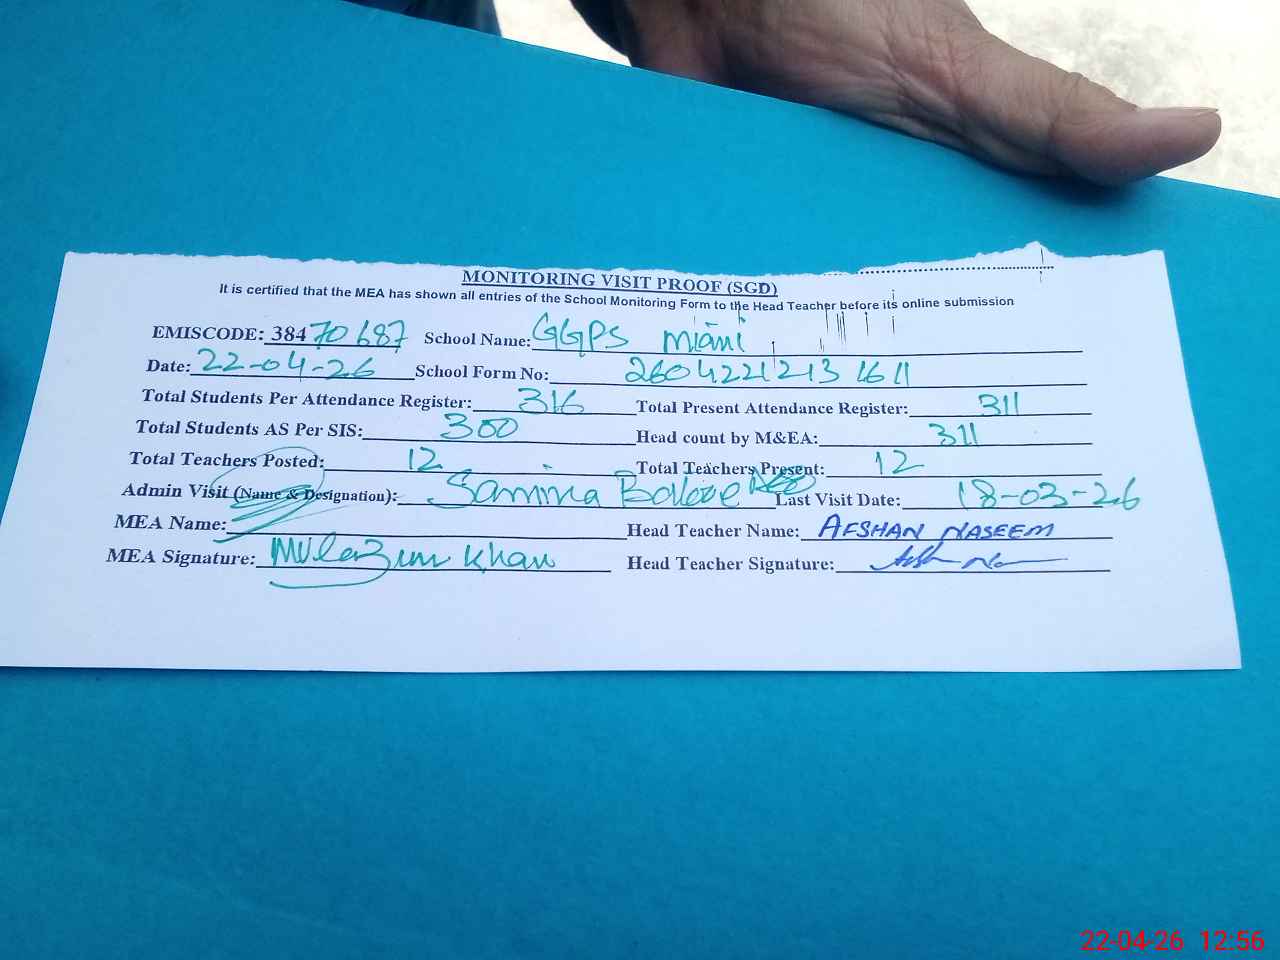 MONITORING VISIT PROOF (SGD)
It is certified that the MEA has shown all entries of the School Monitoring Form to the Head Teacher before its online submission
EMISCODE: 38470687 School Name: GGPS miani
Date: 22-04-26 School Form No: 2604221213 1611
Total Students Per Attendance Register: 316 Total Present Attendance Register: 311
Total Students AS Per SIS: 300 Head count by M&EA: 311
Total Teachers Posted: 12 Total Teachers Present: 12
Admin Visit (Name & Designation): Samina Last Visit Date: 18-03-26
MEA Name: Head Teacher Name: AFSHAN NASEEM
MEA Signature: Khan Head Teacher Signature:
22-04-26 12:56